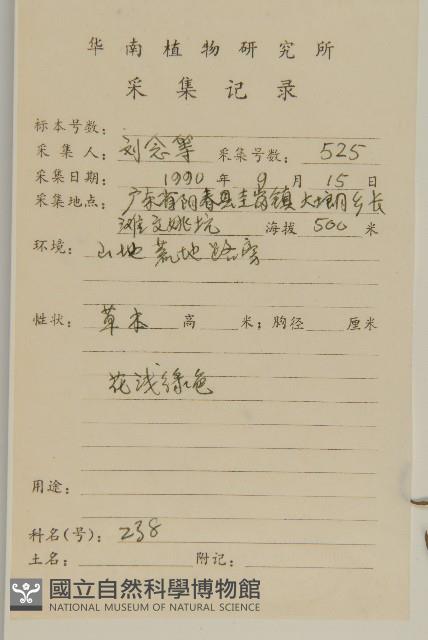 华南植物研究所
采集记录
标本号数:
采集人: 刘念等 采集号数: 525
采集日期: 1990 年 9 月 15 日
采集地点: 广东省阳春县圭岗镇大垌乡长
滩文姚坑 海拔 500 米
环境: 山地荒地路旁
性状: 草本 高 米; 胸径 厘米
花浅绿色
用途:
科名(号): 238
土名: 附记:
國立自然科學博物館
NATIONAL MUSEUM OF NATURAL SCIENCE